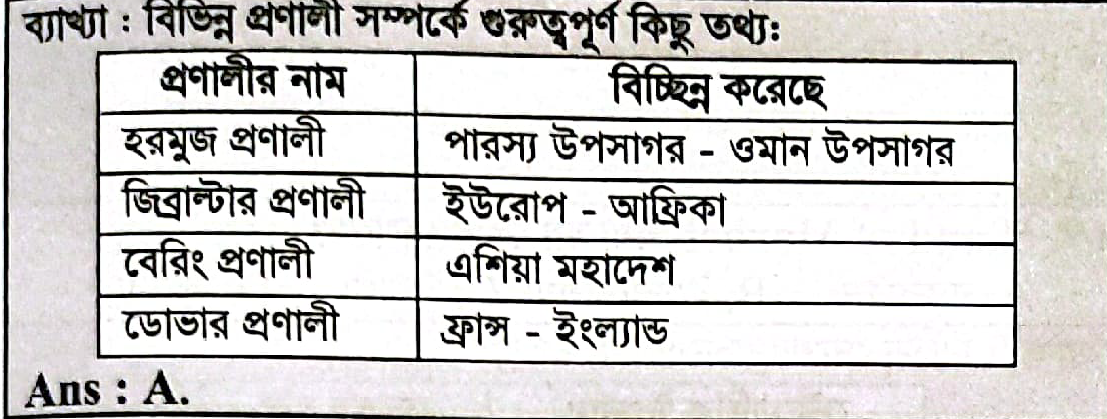 ব্যাখ্যা : বিভিন্ন প্রণালী সম্পর্কে গুরুত্বপূর্ণ কিছু তথ্য:
প্রণালীর নাম বিচ্ছিন্ন করেছে
হরমুজ প্রণালী পারস্য উপসাগর - ওমান উপসাগর
জিব্রাল্টার প্রণালী ইউরোপ - আফ্রিকা
বেরিং প্রণালী এশিয়া মহাদেশ
ডোভার প্রণালী ফ্রান্স - ইংল্যান্ড
Ans : A.